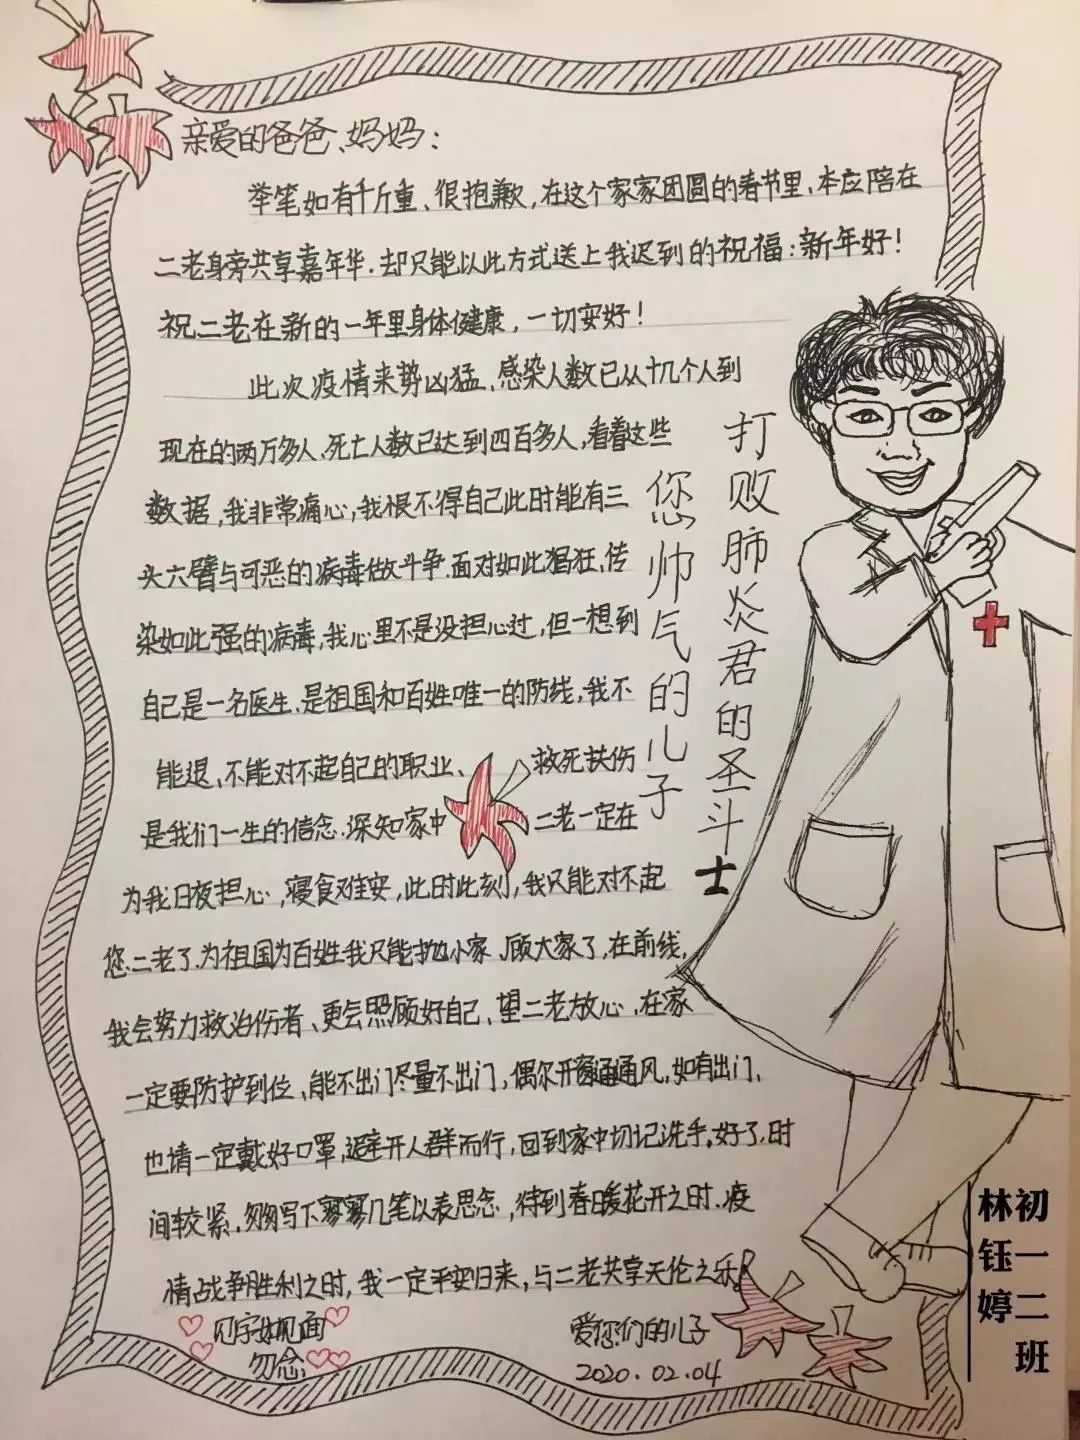 亲爱的爸爸、妈妈：
举笔如有千斤重、很抱歉,在这个家家团圆的春节里、本应陪在
二老身旁共享嘉年华.却只能以此方式送上我迟到的祝福：新年好！
祝二老在新的一年里身体健康，一切安好！
此次疫情来势凶猛、感染人数已从十几个人到
现在的两万多人、死亡人数已达到四百多人，看着这些
数据，我非常痛心，我恨不得自己此时能有三
头六臂与可恶的病毒做斗争.面对如此猖狂,传
染如此强的病毒,我心里不是没担心过，但一想到
自己是一名医生.是祖国和百姓唯一的防线,我不
能退、不能对不起自己的职业、救死扶伤
是我们一生的信念.深知家中二老一定在
为我日夜担心，寝食难安，此时此刻，我只能对不起
您二老了.为祖国为百姓我只能抛小家、顾大家了,在前线,
我会努力救治伤者、更会照顾好自己、望二老放心、在家
一定要防护到位、能不出门尽量不出门，偶尔开窗通通风,如有出门、
也请一定戴好口罩,避开人群而行，回到家中切记洗手。好了,时
间较紧，匆匆写下寥寥几笔以表思念，待到春暖花开之时.疫
情战争胜利之时，我一定平安归来，与二老共享天伦之乐！
见字如见面
勿念
爱您们的儿子
2020.02.04
打败肺炎君的圣斗士
您帅气的儿子
初一二班
林钰婷